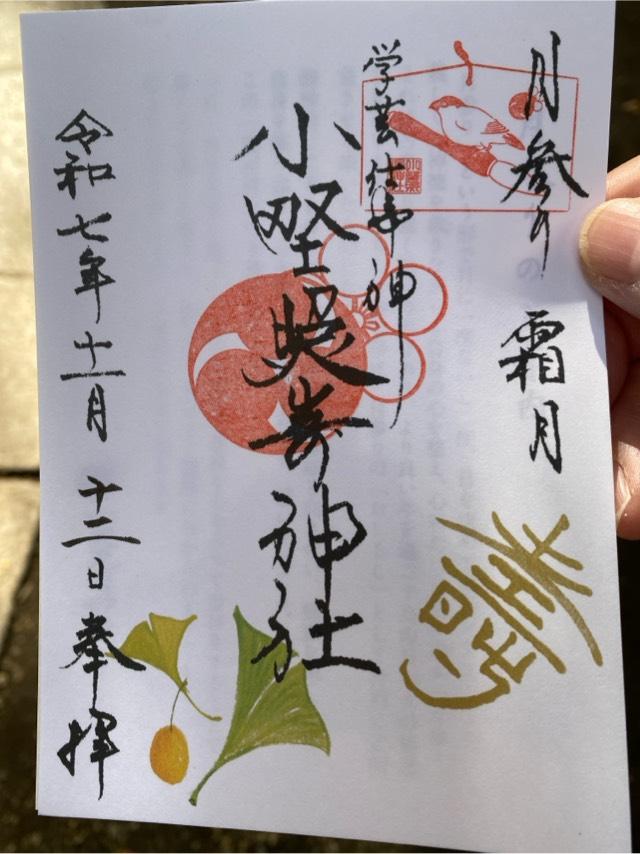 月参り 霜月
壽
学芸仕事神
小野照崎神社
令和七年十一月十二日奉拝